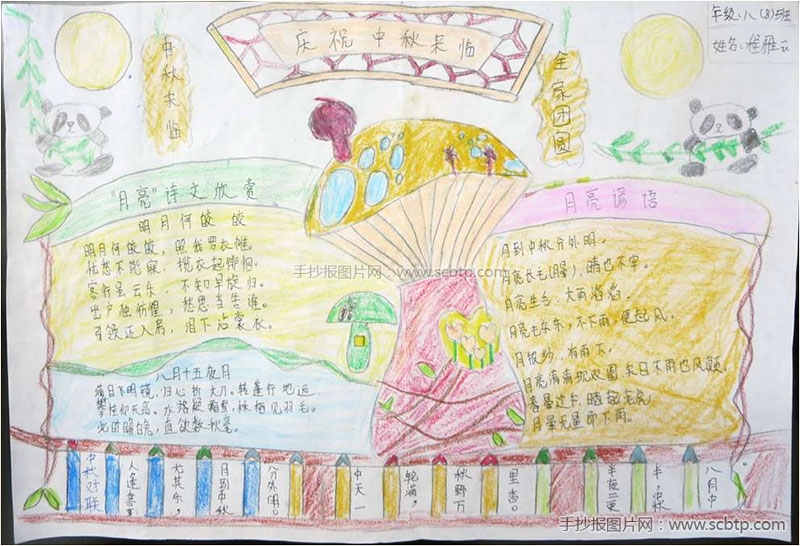 年级:八(8)班
姓名:程雅云
庆祝中秋来临
中秋来临
全家团圆
"月亮"诗文欣赏
明月何皎皎
明月何皎皎，照我罗衣帷。
忧愁不能寐，揽衣起徘徊。
客行虽云乐，不如早旋归。
出户独彷徨，愁思当告谁。
引领还入房，泪下沾裳衣。
八月十五夜月
满目飞明镜，归心折大刀。转蓬行地远
攀桂仰天高。水路疑霜雪，林栖见羽毛。
此时瞻白兔，直欲数秋毫。
月亮谚语
月到中秋分外明。
月亮长毛
月亮生毛，大雨滔滔。
不下雨，便起风。
有雨下。
月亮
来日不雨也风颠。
月晕
不雨。
手抄报图片网：www.scbtp.com
中秋对联
人逢喜事
尤其乐，
月到中秋
分外明。
中天一
轮满，
秋野万
里香。
半夜二更
半，中秋
八月中
手抄报图片网：www.scbtp.com